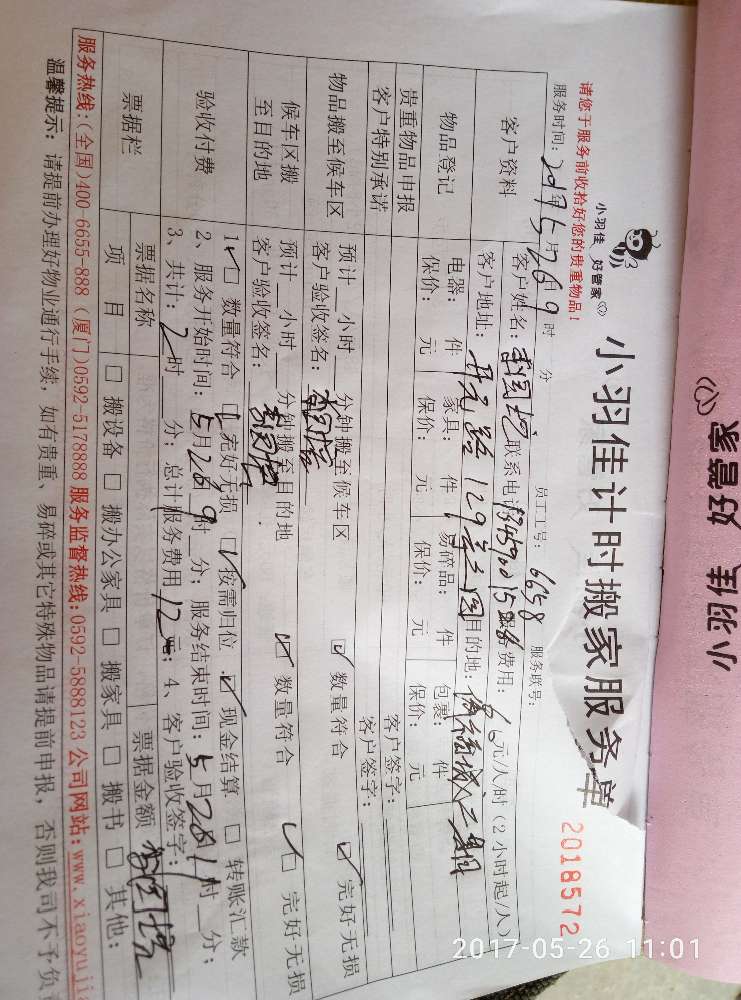 小羽佳 好管家
小羽佳 好管家
小羽佳计时搬家服务单
请您于服务前收拾好您的贵重物品！
2018572
服务时间: 2017年5月26日9时 分
员工工号: 6658
服务联号:
客户资料
客户姓名:
联系电话:
服务费用: 6元/人/时（2小时起/人）
客户地址: 开元路129号之
目的地:
物品登记
电器: 件 家具: 件 易碎品: 件 包裹: 件
保价: 元 保价: 元 保价: 元 保价: 元
贵重物品申报
客户签字:
客户特别承诺
客户签字:
物品搬至候车区
预计__小时__分钟搬至候车区 ☑ 数量符合 ☑ 完好无损
客户验收签名:
候车区搬至目的地
预计__小时__分钟搬至目的地 ☑ 数量符合 ☑ 完好无损
客户验收签名:
验收付费
1、☑ 数量符合 ☑ 完好无损 ☑ 按需归位 ☑ 现金结算 □ 转账汇款
2、服务开始时间: 5月26日9时__分; 服务结束时间: 5月26日11时__分;
3、共计: 2时__分; 总计服务费用12元; 4、客户验收签字:
票据栏
票据名称
票据金额
项 目 □ 搬设备 □ 搬办公家具 □ 搬家具 □ 搬书 □ 其他:
服务热线:(全国)400-6655-888 (厦门)0592-5178888 服务监督热线:0592-5888123 公司网站:www.xiaoyujia
温馨提示: 请提前办理好物业通行手续, 如有贵重、易碎或其它特殊物品请提前申报, 否则我司不予负
2017-05-26 11:01